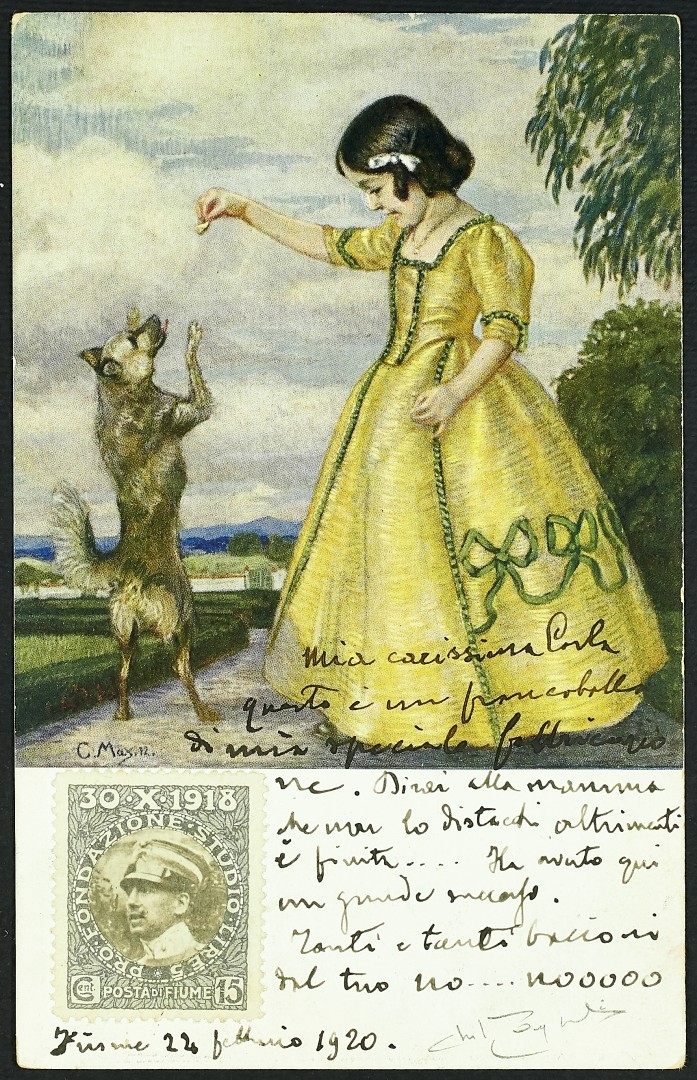 Mia carissima Carla
questo è un francobollo
di mia speciale fabbricazio
C. Max. 12.
ne. Dirai alla mamma
che non lo distacchi altrimenti
è finita.... Ha avuto qui
un grande successo.
Tanti e tanti bacioni
dal tuo no.... nooooo
30·X·1918
PRO·FONDAZIONE·STUDIO·LIRE 5
Cent. POSTA DI FIUME 15
Fiume 22 febbraio 1920.